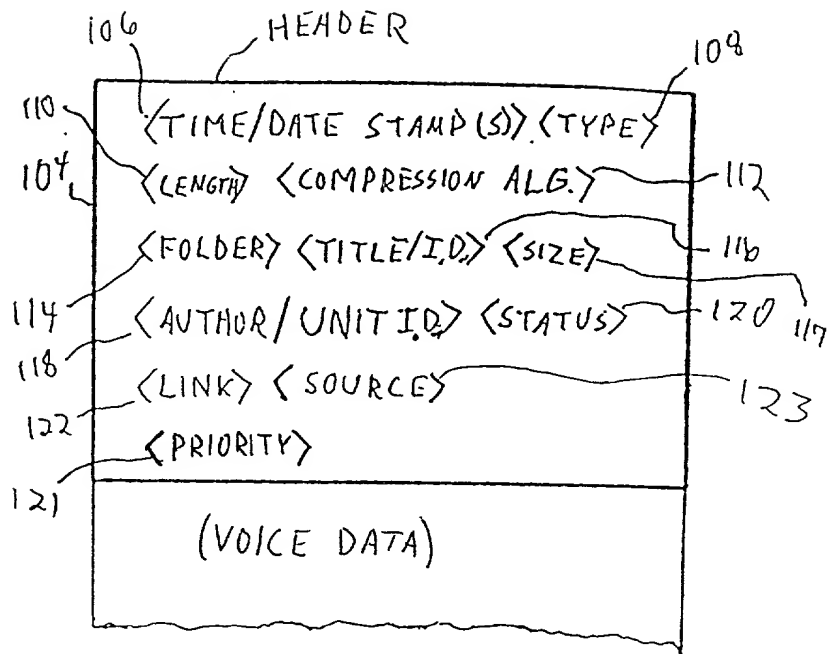 106 HEADER 108
<TIME/DATE STAMP(S)>.<TYPE>
110
104 <LENGTH> <COMPRESSION ALG.> 112
<FOLDER> <TITLE/I.D.> <SIZE> 116
114 <AUTHOR/UNIT I.D.> <STATUS> 120 117
118
<LINK> <SOURCE> 123
122
<PRIORITY>
121
(VOICE DATA)